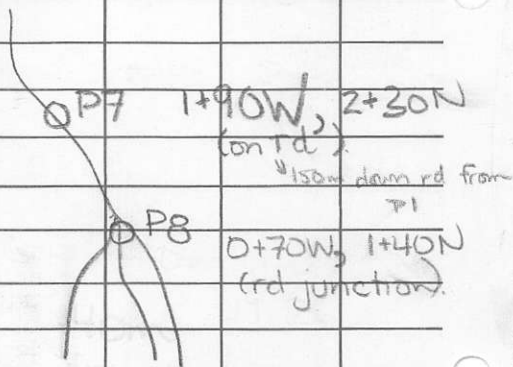 P7 1+90W, 2+30N
(on rd).
150m down rd from
P1
P8 0+70W, 1+40N
(rd junction).